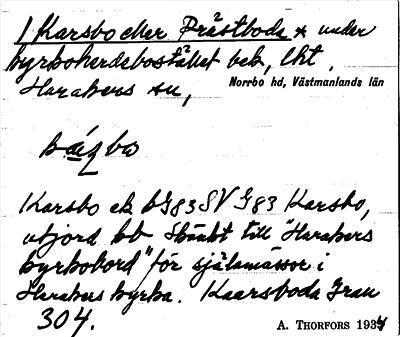 1 Karsbo eller Prästboda × under
kyrkoherdebostället bek, lht.
Norrbo hd, Västmanlands län
Harakers sn,
Karsbo ek bG83 SV G83 Karsbo,
utjord bb Skänkt till "Harakers
kyrkobord" för själamässor i
Harakers kyrka. Kaarsboda Grau
304.
A. THORFORS 1934